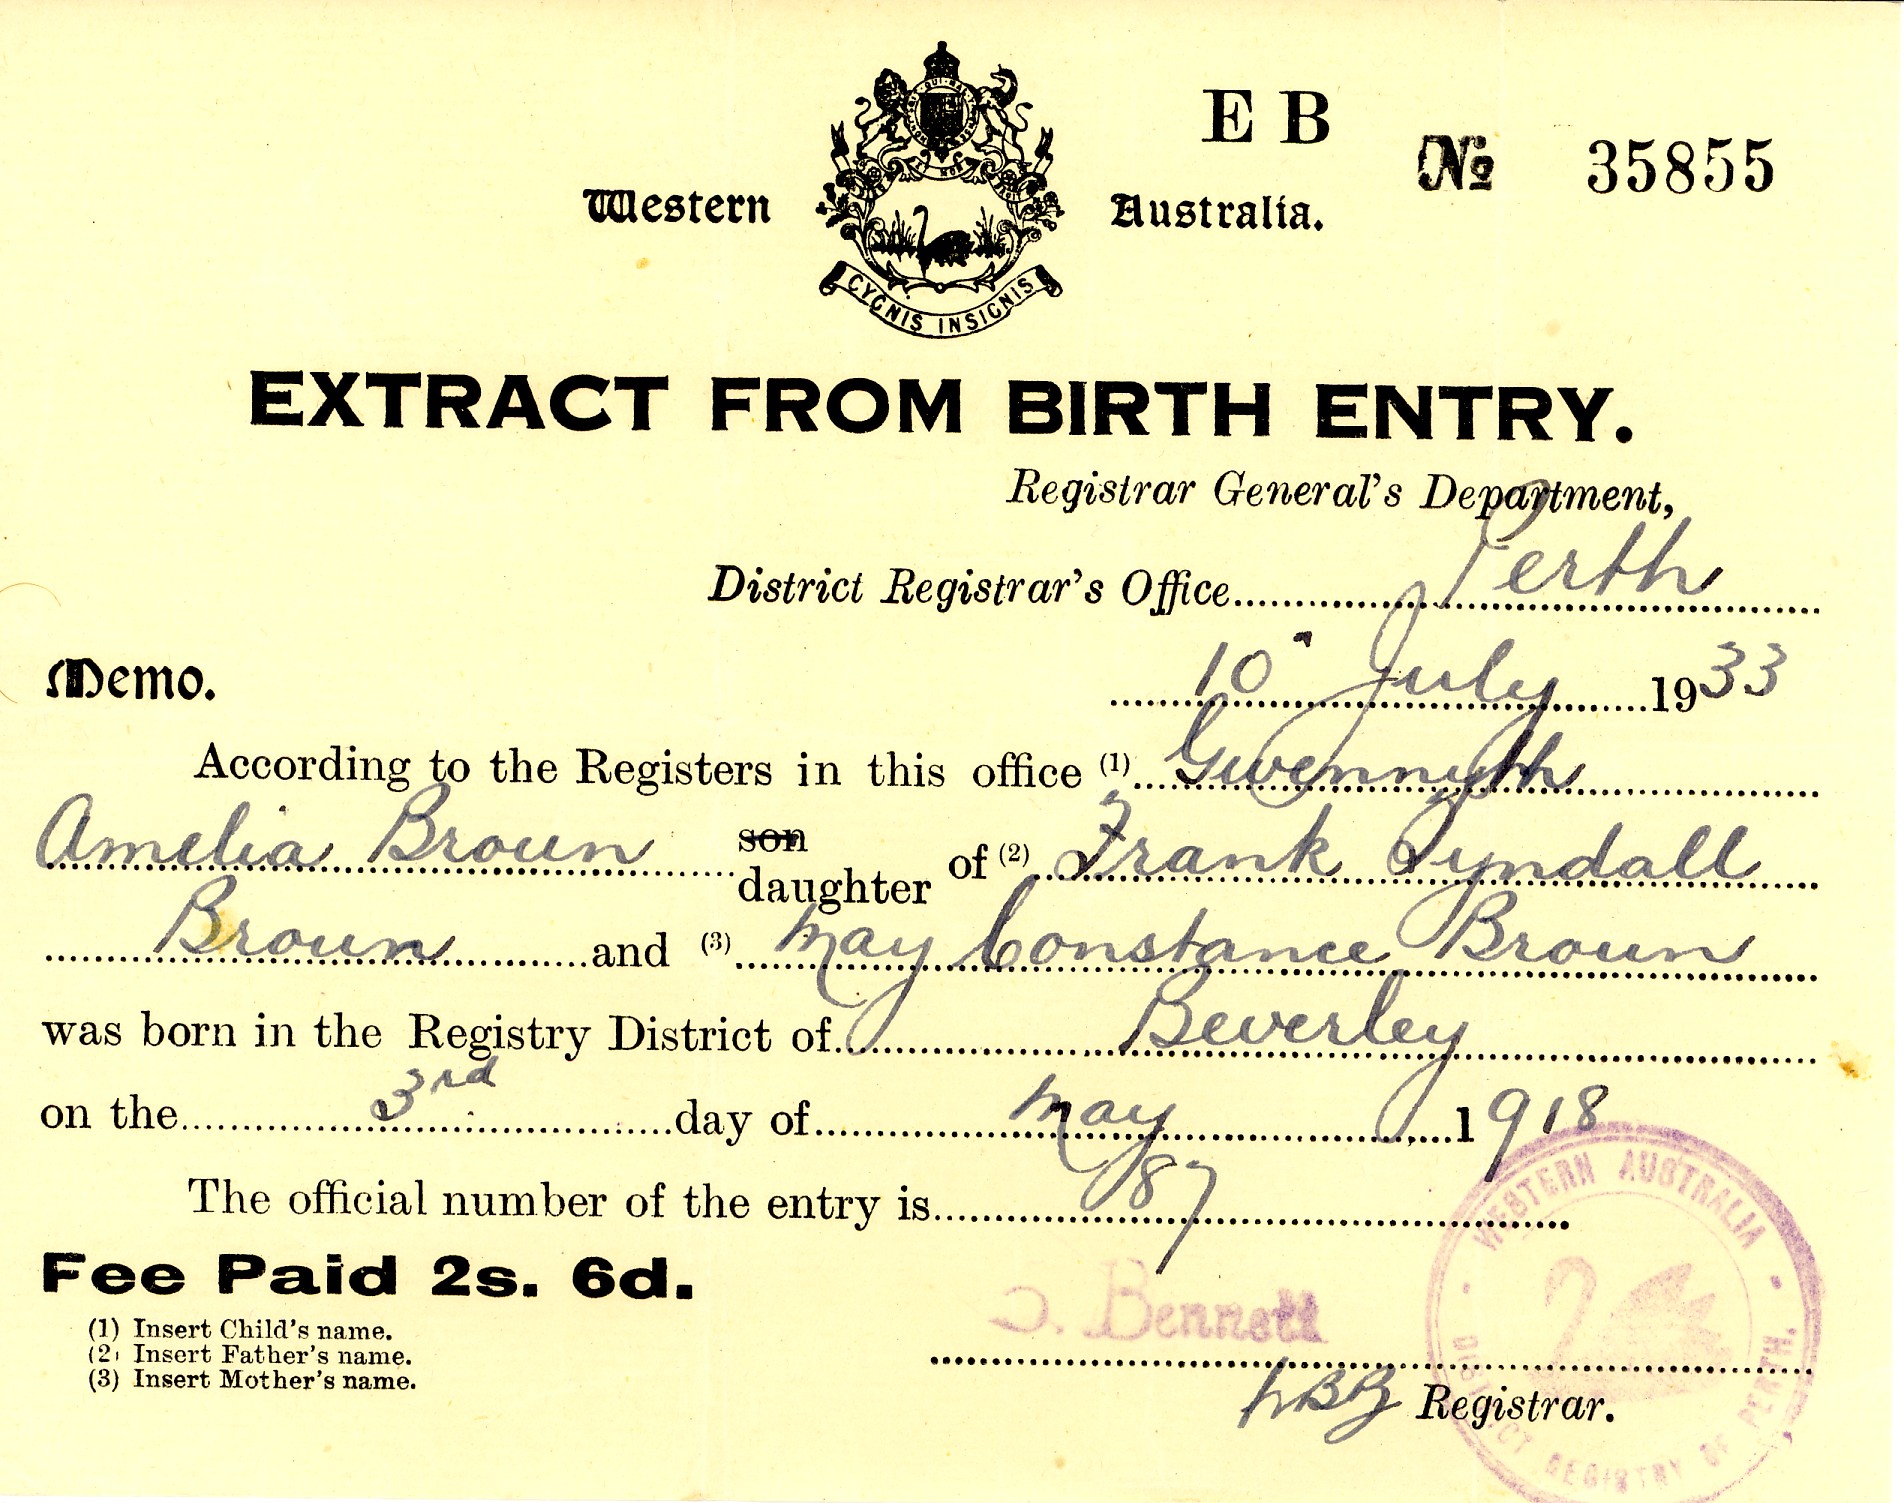 E B
№ 35855
Western Australia.
CYGNIS INSIGNIS
EXTRACT FROM BIRTH ENTRY.
Registrar General's Department,
District Registrar's Office Perth
Memo.
10" July 1933
According to the Registers in this office (1) Gwennyth
Amelia Broun son daughter of (2) Frank Tyndall
Broun and (3) May Constance Broun
was born in the Registry District of Beverley
on the 3rd day of May 1918
The official number of the entry is 87
Fee Paid 2s. 6d.
(1) Insert Child's name.
(2) Insert Father's name.
(3) Insert Mother's name.
Bennett
Registrar.
WESTERN AUSTRALIA
DISTRICT REGISTRY OF PERTH.